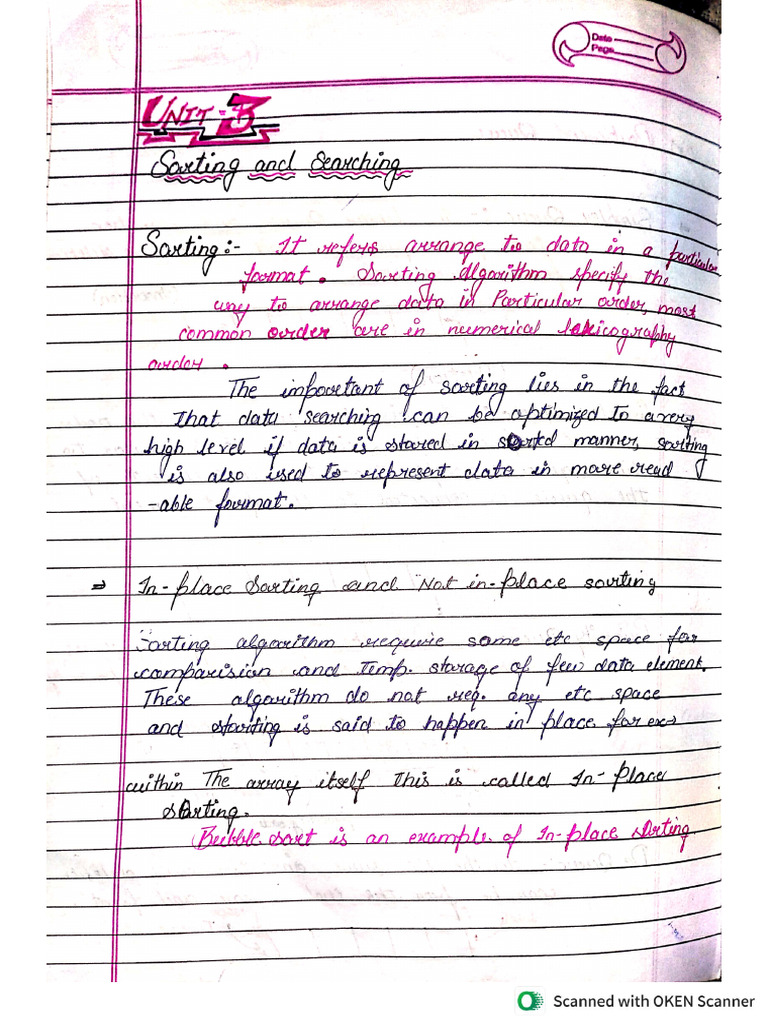 Date
Page
UNIT-3
Sorting and Searching
Sorting:- It refers arrange to data in a particular
format. Sorting Algorithm specify the
way to arrange data in Particular order, most
common order are in numerical lexicography
order.
The important of sorting lies in the fact
that data searching can be optimized to a very
high level if data is stored in sorted manner, sorting
is also used to represent data in more read
-able format.
⇒ In-place Sorting and Not in-place sorting
Sorting algorithm require some etc space for
comparision and temp. storage of few data element.
These algorithm do not req. any etc space
and storting is said to happen in place for ex→
within The array itself This is called In-Place
sorting.
Bubble sort is an example of In-place sorting
Scanned with OKEN Scanner